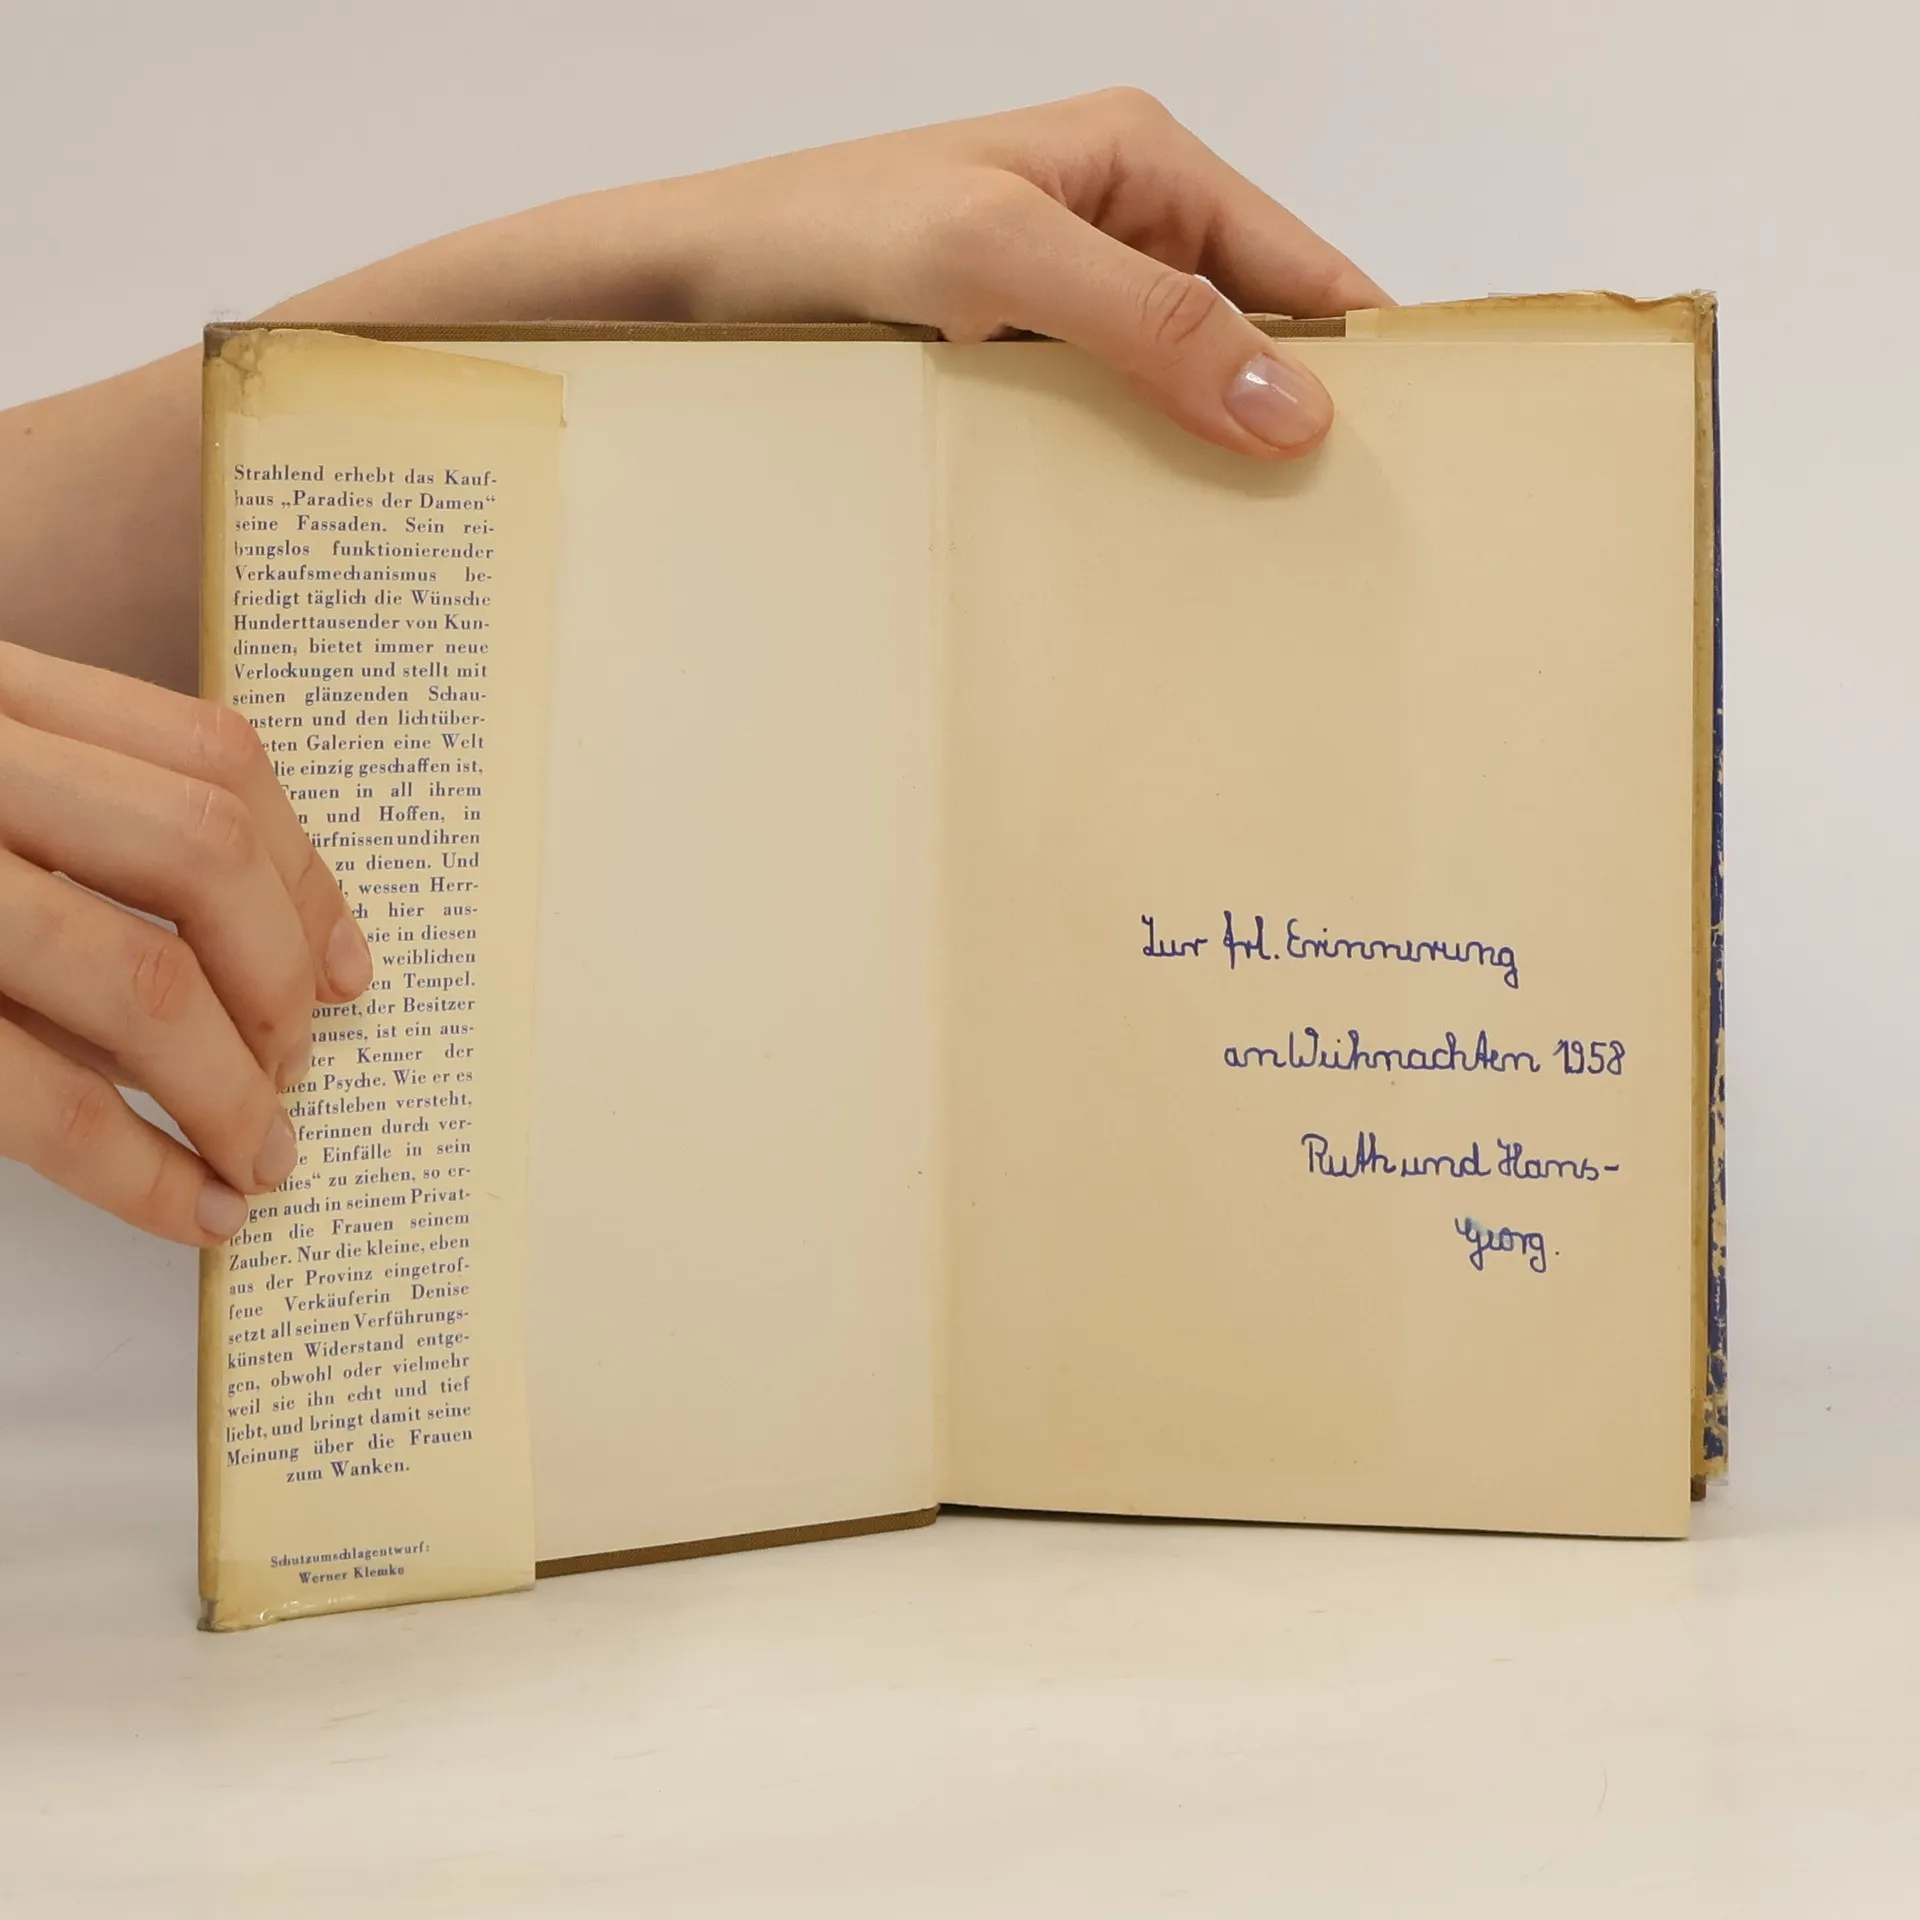 Strahlend erhebt das Kauf-
haus „Paradies der Damen“
seine Fassaden. Sein rei-
bungslos funktionierender
Verkaufsmechanismus be-
friedigt täglich die Wünsche
Hunderttausender von Kun-
dinnen, bietet immer neue
Verlockungen und stellt mit
seinen glänzenden Schau-
nstern und den lichtüber-
eten Galerien eine Welt
die einzig geschaffen ist,
Frauen in all ihrem
n und Hoffen, in
ürfnissen und ihren
zu dienen. Und
wessen Herr-
ch hier aus-
sie in diesen
weiblichen
en Tempel.
ouret, der Besitzer
hauses, ist ein aus-
ter Kenner der
hen Psyche. Wie er es
chäftsleben versteht,
ferinnen durch ver-
e Einfälle in sein
dies“ zu ziehen, so er-
gen auch in seinem Privat-
leben die Frauen seinem
Zauber. Nur die kleine, eben
aus der Provinz eingetrof-
fene Verkäuferin Denise
setzt all seinen Verführungs-
künsten Widerstand entge-
gen, obwohl oder vielmehr
weil sie ihn echt und tief
liebt, und bringt damit seine
Meinung über die Frauen
zum Wanken.
Schutzumschlagentwurf:
Werner Klemke
Zur frl. Erinnerung
an Weihnachten 1958
Ruth und Hans-
Georg.